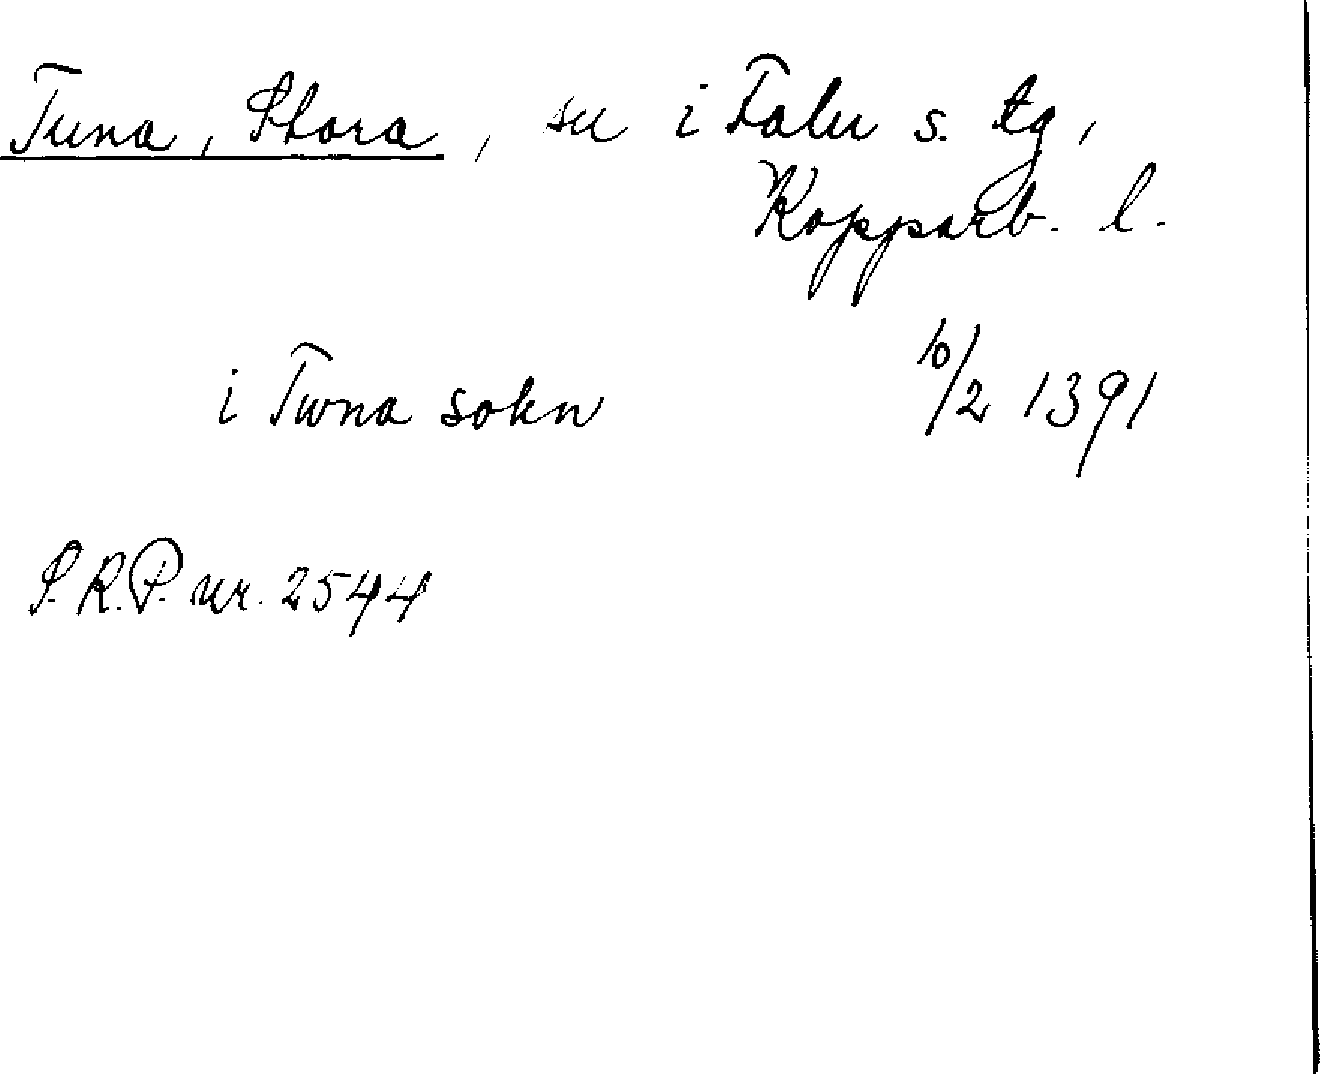 Tuna, Stora, sn i Falu s. tg,
Kopparb. l.
i Twna sokn 10/2 1391
S.R.P. nr. 2544